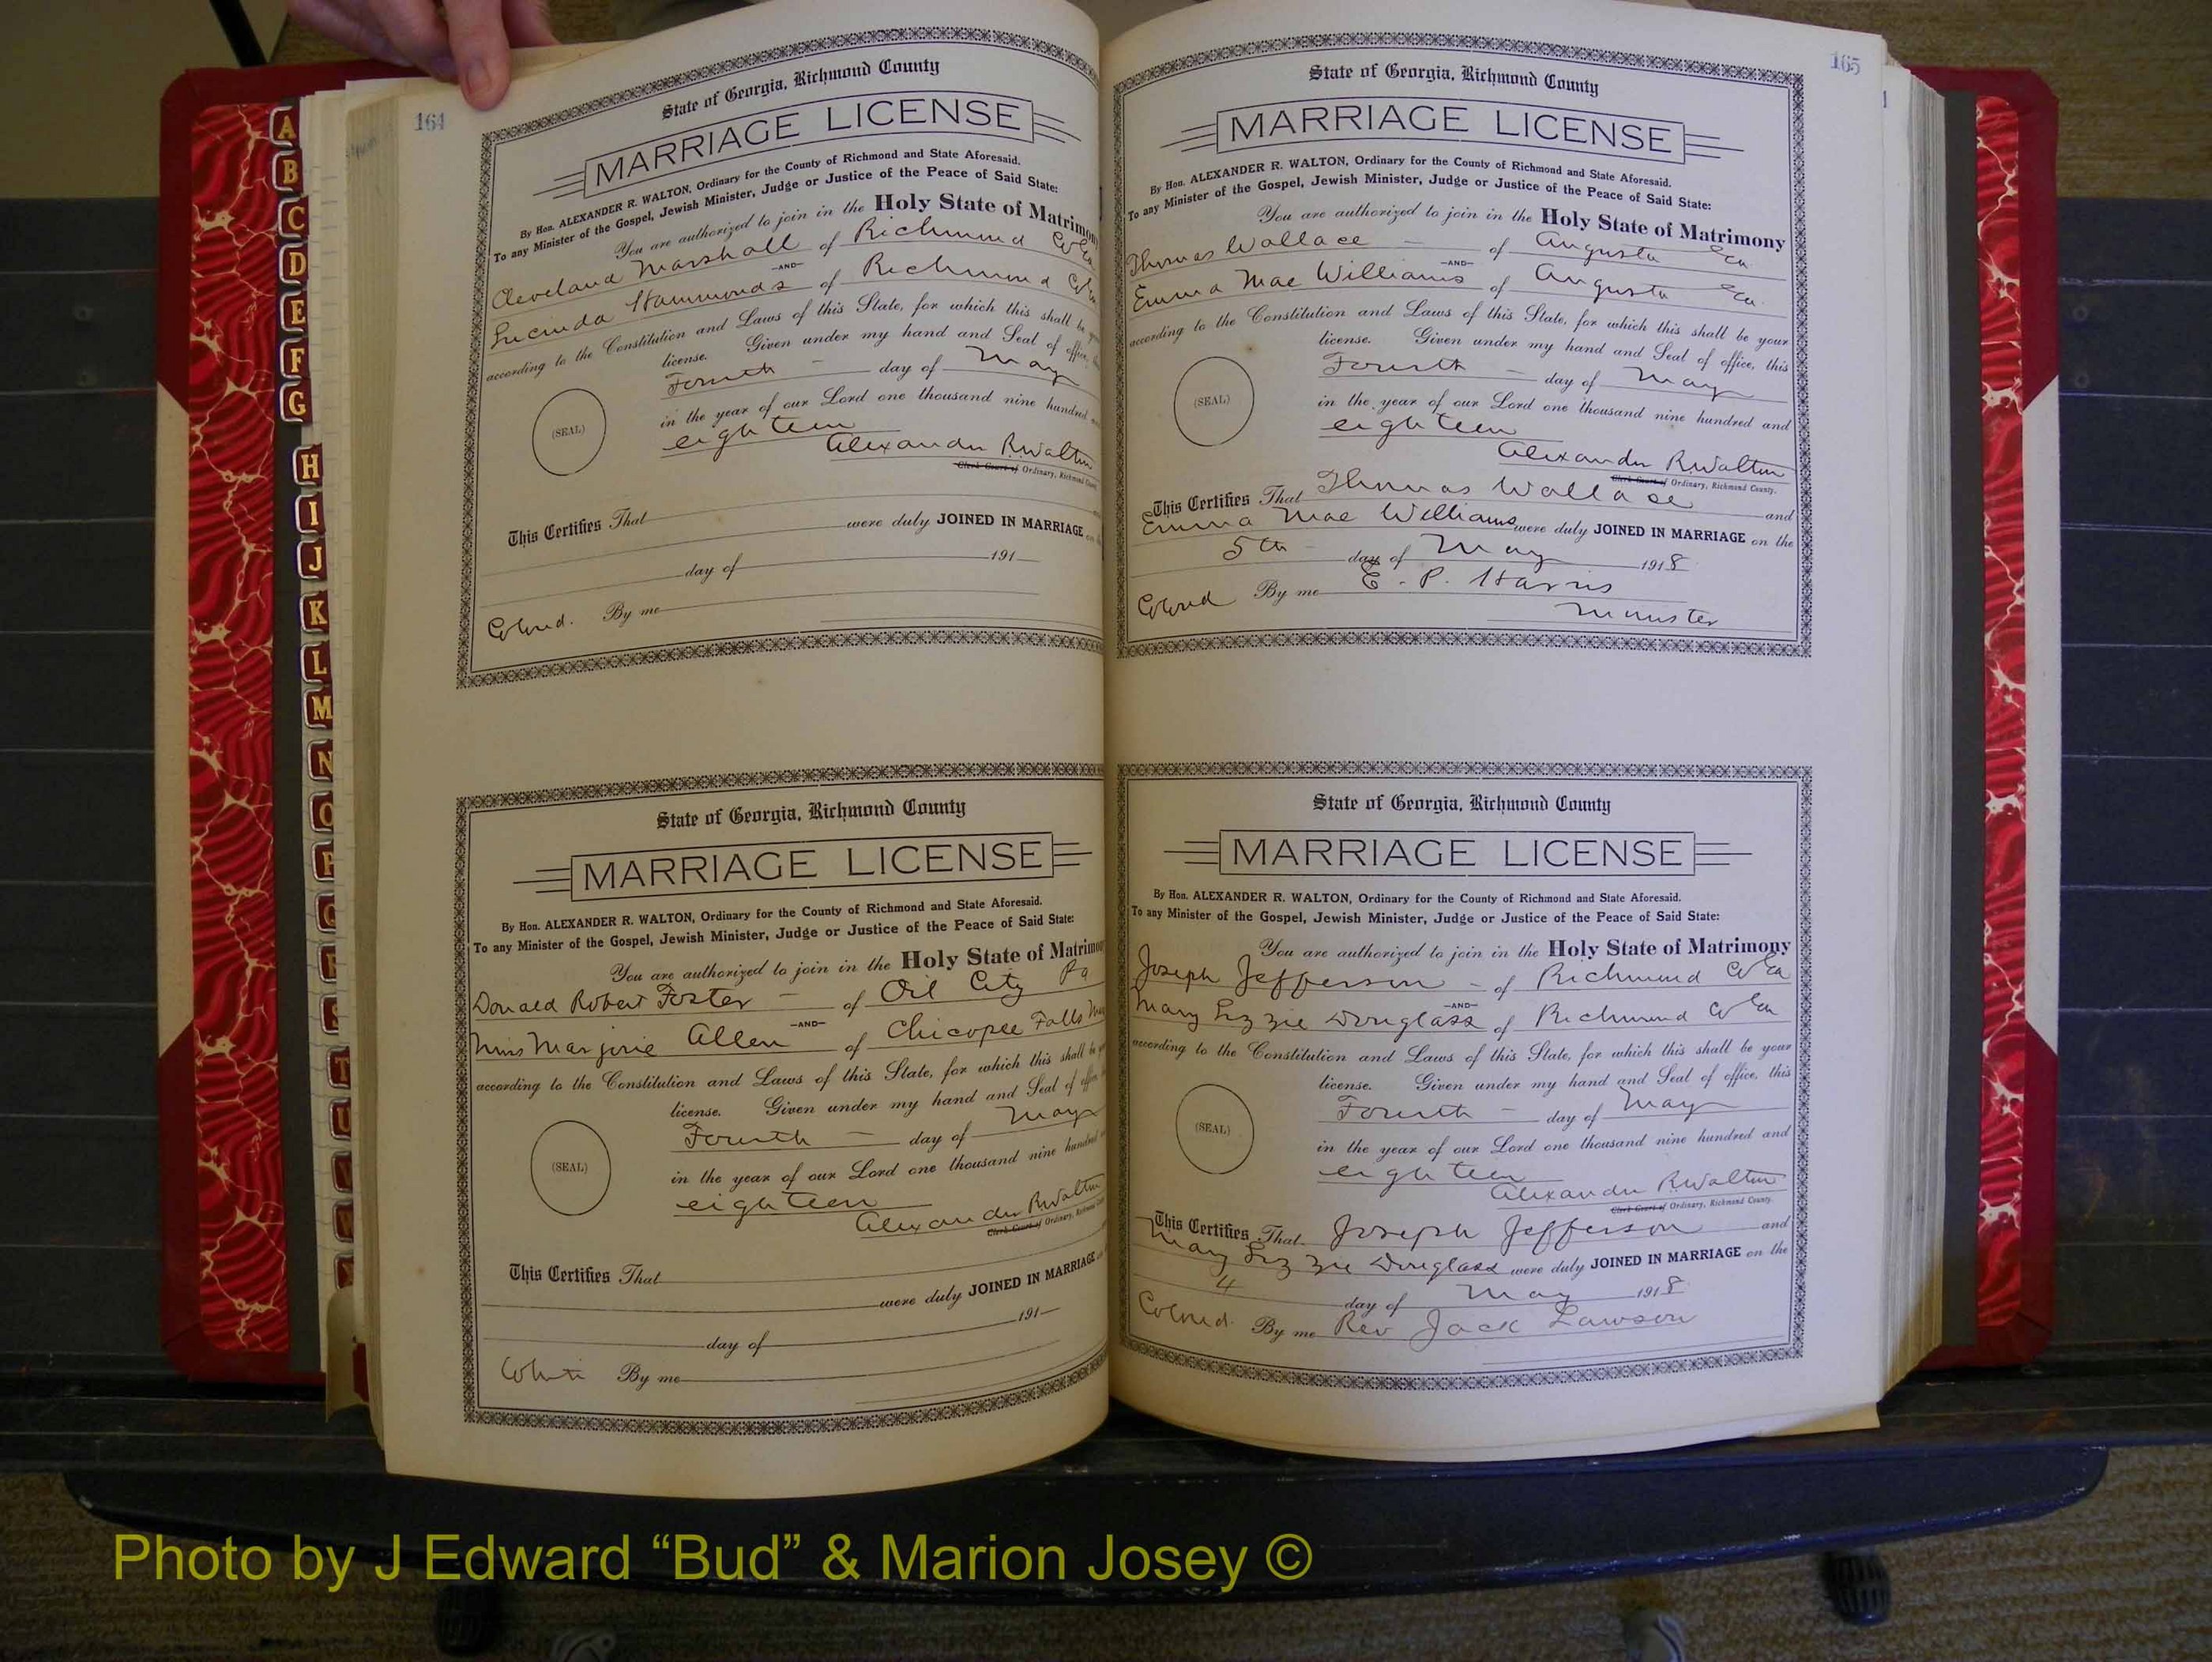 164
State of Georgia, Richmond County
MARRIAGE LICENSE
By Hon. ALEXANDER R. WALTON, Ordinary for the County of Richmond and State Aforesaid.
To any Minister of the Gospel, Jewish Minister, Judge or Justice of the Peace of Said State:
You are authorized to join in the Holy State of Matrimony
Cleveland Marshall of Richmond Co Ga
—AND—
Lucinda Hammonds of Richmond Co Ga
according to the Constitution and Laws of this State, for which this shall be
license. Given under my hand and Seal of office,
Fourth — day of May
(SEAL)
in the year of our Lord one thousand nine hundred
eighteen
Alexander R Walton
Clerk Court of Ordinary, Richmond County
This Certifies That
were duly JOINED IN MARRIAGE
day of 191
Colored. By me
State of Georgia, Richmond County
MARRIAGE LICENSE
By Hon. ALEXANDER R. WALTON, Ordinary for the County of Richmond and State Aforesaid.
To any Minister of the Gospel, Jewish Minister, Judge or Justice of the Peace of Said State:
You are authorized to join in the Holy State of Matrimo
Donald Robert Foster — of Oil City Pa
—AND—
Miss Marjorie Allen of Chicopee Falls
according to the Constitution and Laws of this State, for which this shall be
license. Given under my hand and Seal of
Fourth — day of May
(SEAL)
in the year of our Lord one thousand nine hundred
eighteen
Alexander R Walton
Clerk Court of Ordinary, Richmond
This Certifies That
were duly JOINED IN MARRIAGE
191
day of
White By me
165
State of Georgia, Richmond County
MARRIAGE LICENSE
By Hon. ALEXANDER R. WALTON, Ordinary for the County of Richmond and State Aforesaid.
To any Minister of the Gospel, Jewish Minister, Judge or Justice of the Peace of Said State:
You are authorized to join in the Holy State of Matrimony
Thomas Wallace — of Augusta Ga
—AND—
Emma Mae Williams of Augusta Ga.
according to the Constitution and Laws of this State, for which this shall be your
license. Given under my hand and Seal of office, this
Fourth — day of May
(SEAL)
in the year of our Lord one thousand nine hundred and
eighteen
Alexander R Walton
Clerk Court of Ordinary, Richmond County.
This Certifies That Thomas Wallace and
Emma Mae Williams were duly JOINED IN MARRIAGE on the
5th day of May 1918
Colored By me E. P. Harris
Minister
State of Georgia, Richmond County
MARRIAGE LICENSE
By Hon. ALEXANDER R. WALTON, Ordinary for the County of Richmond and State Aforesaid.
To any Minister of the Gospel, Jewish Minister, Judge or Justice of the Peace of Said State:
You are authorized to join in the Holy State of Matrimony
Joseph Jefferson — of Richmond Co Ga
—AND—
Mary Lizzie Douglass of Richmond Co Ga
according to the Constitution and Laws of this State, for which this shall be your
license. Given under my hand and Seal of office, this
Fourth — day of May
(SEAL)
in the year of our Lord one thousand nine hundred and
eighteen
Alexander R Walton
Clerk Court of Ordinary, Richmond County.
This Certifies That Joseph Jefferson and
Mary Lizzie Douglass were duly JOINED IN MARRIAGE on the
4 day of May 1918
Colored. By me Rev Jack Lawson
A
B
C
D
E
F
G
H
I
J
K
L
M
N
O
P
Q
R
S
T
U
V
W
Photo by J Edward “Bud” & Marion Josey ©